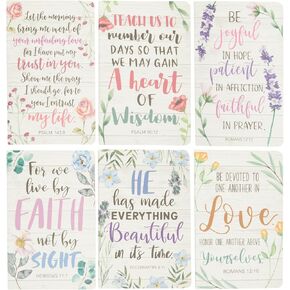 Let the morning
bring me word of
your unfailing love
for I have put my
trust in you.
Show me the way
I should go, for to
you I entrust
my life.
PSALM 143:8
TEACH US TO
number our
DAYS SO THAT
WE MAY GAIN
A heart
OF
Wisdom
PSALM 90:12
BE
joyful
IN HOPE,
patient
IN AFFLICTION
faithful
IN PRAYER.
ROMANS 12:12
For we
live by
FAITH
not by
SIGHT.
HE
has made
EVERYTHING
Beautiful
in its time.
ECCLESIASTES 3:11
BE DEVOTED TO
ONE ANOTHER IN
Love
HONOR ONE ANOTHER ABOVE
Yourselves.
ROMANS 12:10